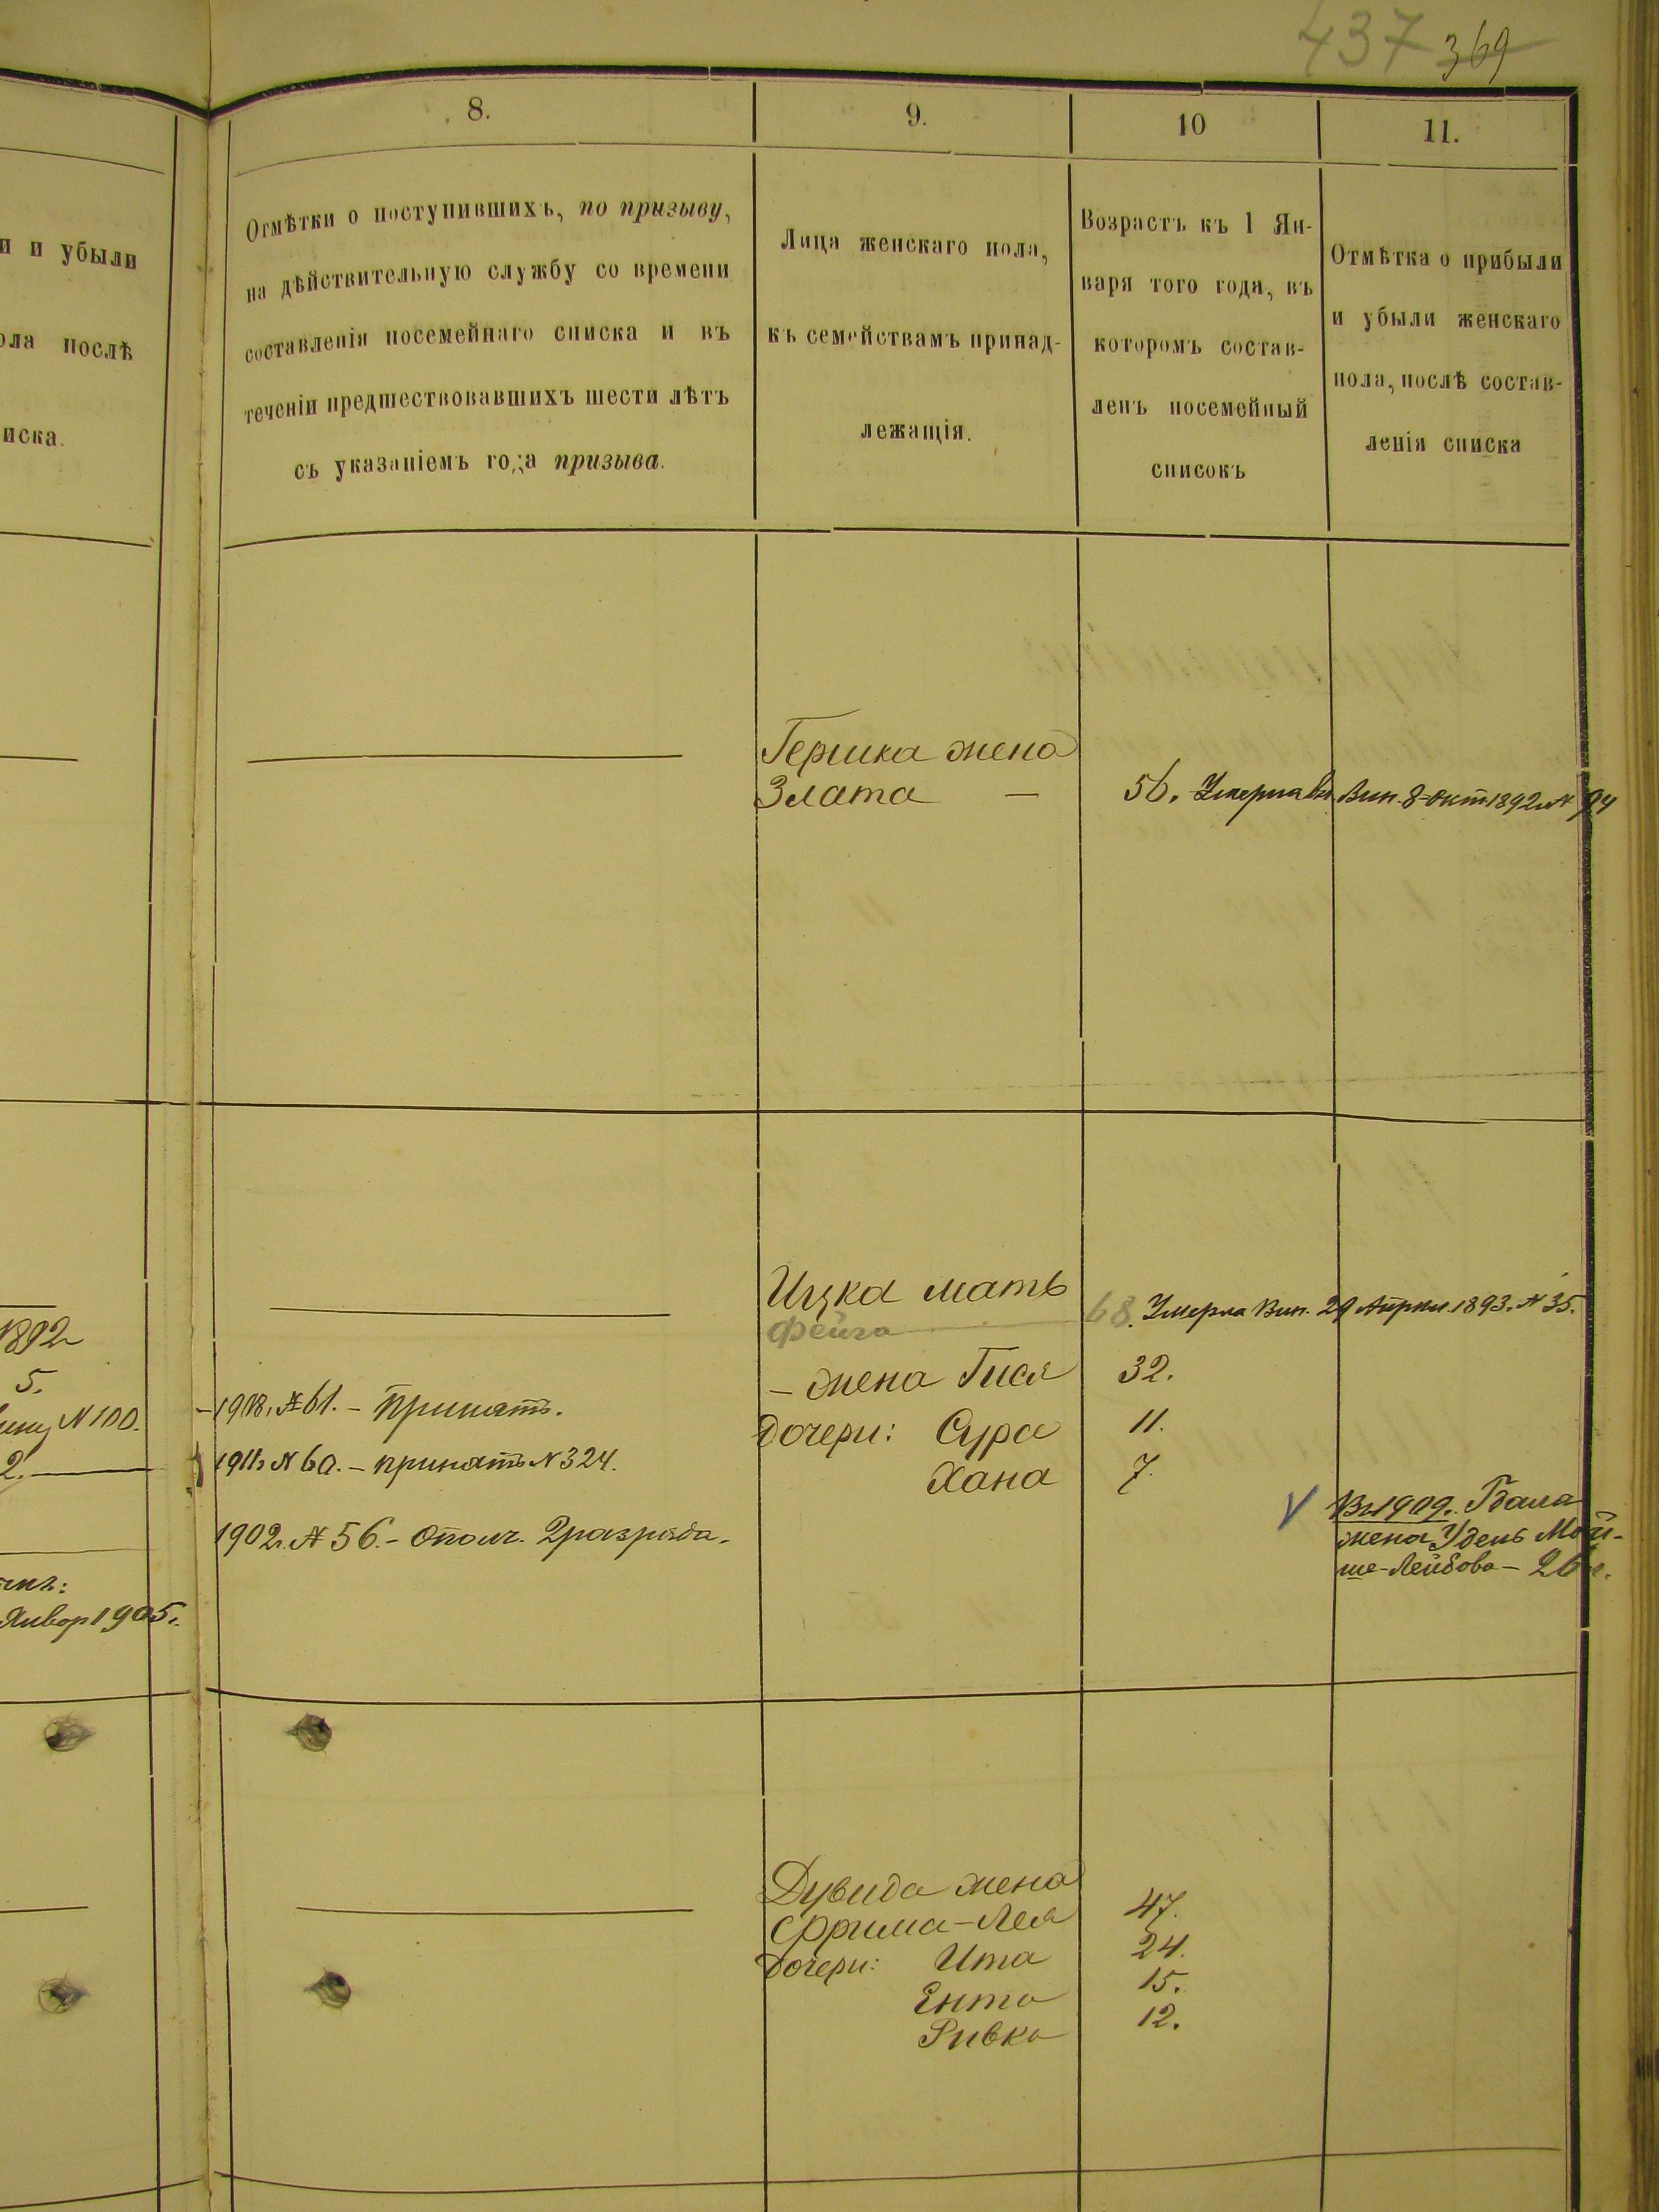 437 369
8.
9.
10
11.
и и убыли
ола послѣ
иска.
Отмѣтки о поступившихъ, по призыву,
на дѣйствительную службу со времени
составленія посемейнаго списка и въ
теченіи предшествовавшихъ шести лѣтъ
съ указаніемъ года призыва.
Лица женскаго пола,
къ семействамъ принад-
лежащія.
Возрастъ къ 1 Ян-
варя того года, въ
которомъ состав-
ленъ посемейный
списокъ
Отмѣтка о прибыли
и убыли женскаго
пола, послѣ состав-
ленія списка
Гершка жена
Злата —
56. Умерла въ Вин. 8 Окт 1892 № 94
Ицка мать
Фейга
68. Умерла Вин. 29 Апрѣл. 1893. № 35.
– жена Гися 32.
Дочери: Сура 11.
Хана 7.
1892
5.
N 100.
2.
Январ 1905г.
№ 61. – Принятъ.
N 60. – принятъ N 324.
1902г. № 56. – Ополч. 2 разряда.
V Въ 1909г.
жена Удень Мой-
ше-Лейбова – 26 л.
Дувида жена
Фрима-Лея 47.
Дочери: Ита 24.
Ента 15.
Ривка 12.